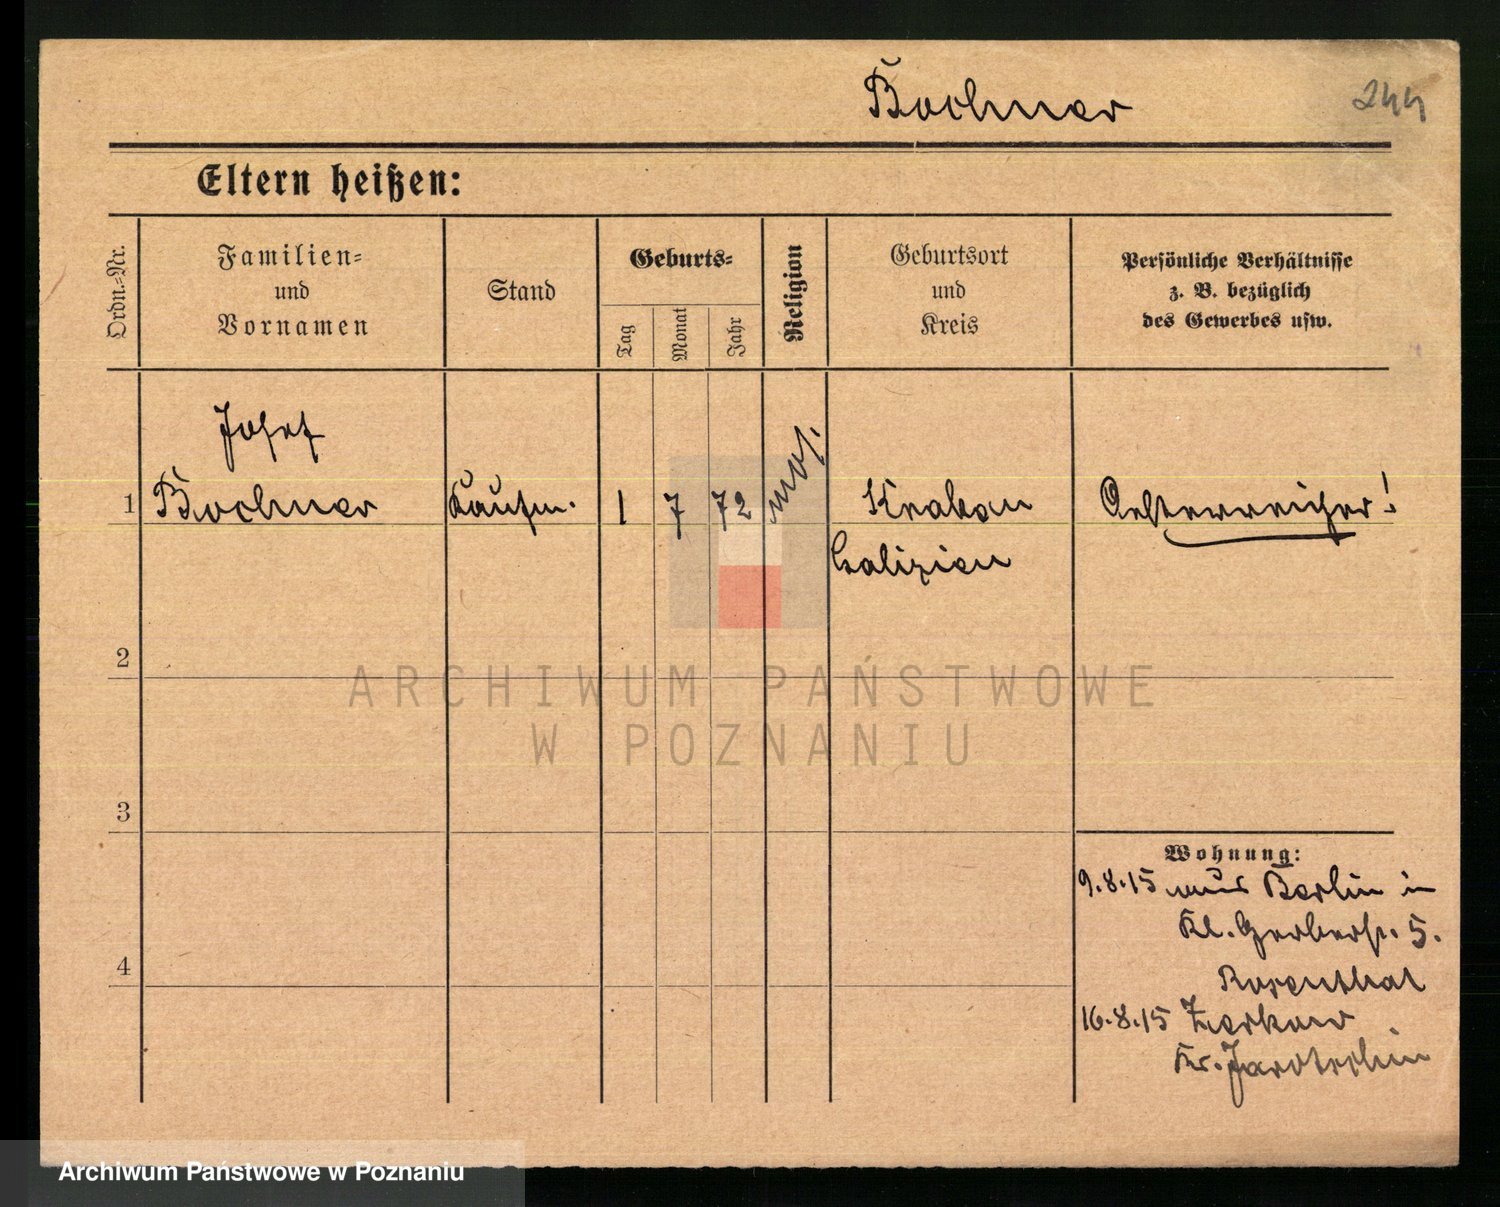 Bochner
244
Eltern heißen:
Ordn.-Nr.
Familien-
und
Vornamen
Stand
Geburts-
Tag
Monat
Jahr
Religion
Geburtsort
und
Kreis
Persönliche Verhältnisse
z. B. bezüglich
des Gewerbes usw.
Josef
1 Bochner Kaufm. 1 7 72 mos. Krakau Oesterreicher!
Galizien
2
ARCHIWUM PAŃSTWOWE
W POZNANIU
3
Wohnung:
9.8.15 aus Berlin in
Kl. Gerberstr. 5.
4
Rosenthal
16.8.15 Zerkow
Kr. Jarotschin
Archiwum Państwowe w Poznaniu